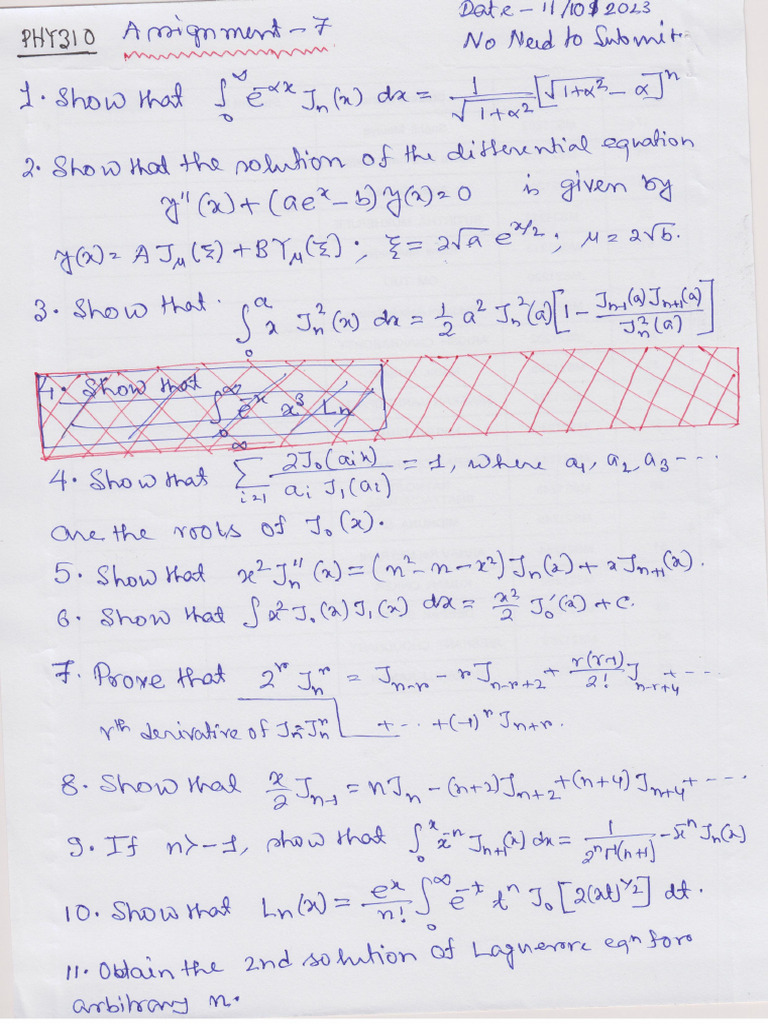 PHY310 Assignment-7
Date - 11/10/2023
No Need to Submit.
1. Show that ∫₀^∞ e^{-αx} Jₙ(x) dx = 1/√(1+α²) [√(1+α²) - α]ⁿ
2. Show that the solution of the differential equation
y''(x) + (aeˣ - b) y(x) = 0 is given by
y(x) = A J_μ(ξ) + B Y_μ(ξ); ξ = 2√a e^{x/2}; μ = 2√b.
3. Show that ∫₀^a x Jₙ²(x) dx = 1/2 a² Jₙ²(a) [1 - J_{n-1}(a) J_{n+1}(a) / Jₙ²(a)]
4. Show that
∫₀^∞ e^{-x} x³ Ln
4. Show that Σ_{i=1}^∞ 2J₀(aᵢx) / aᵢ J₁(aᵢ) = 1, where a₁, a₂, a₃ ...
are the roots of J₀(x).
5. Show that x² Jₙ''(x) = (n² - n - x²) Jₙ(x) + x J_{n+1}(x).
6. Show that ∫x² J₀(x) J₁(x) dx = x²/2 J₀'(x) + c.
7. Prove that 2^r Jₙ^r = J_{n-r} - r J_{n-r+2} + r(r-1)/2! J_{n-r+4} + ...
rth derivative of Jₙ = Jₙ^r + ... + (-1)^r J_{n+r}.
8. Show that x/2 J_{n-1} = nJₙ - (n+2) J_{n+2} + (n+4) J_{n+4} + ...
9. If n > -1, show that ∫₀^x x^{-n} J_{n+1}(x) dx = 1/2ⁿ Γ(n+1) - x^{-n} Jₙ(x)
10. Show that Ln(x) = eˣ/n! ∫₀^∞ e^{-t} tⁿ J₀[2(xt)^{1/2}] dt.
11. Obtain the 2nd solution of Laguerre eqn for
arbitrary n.